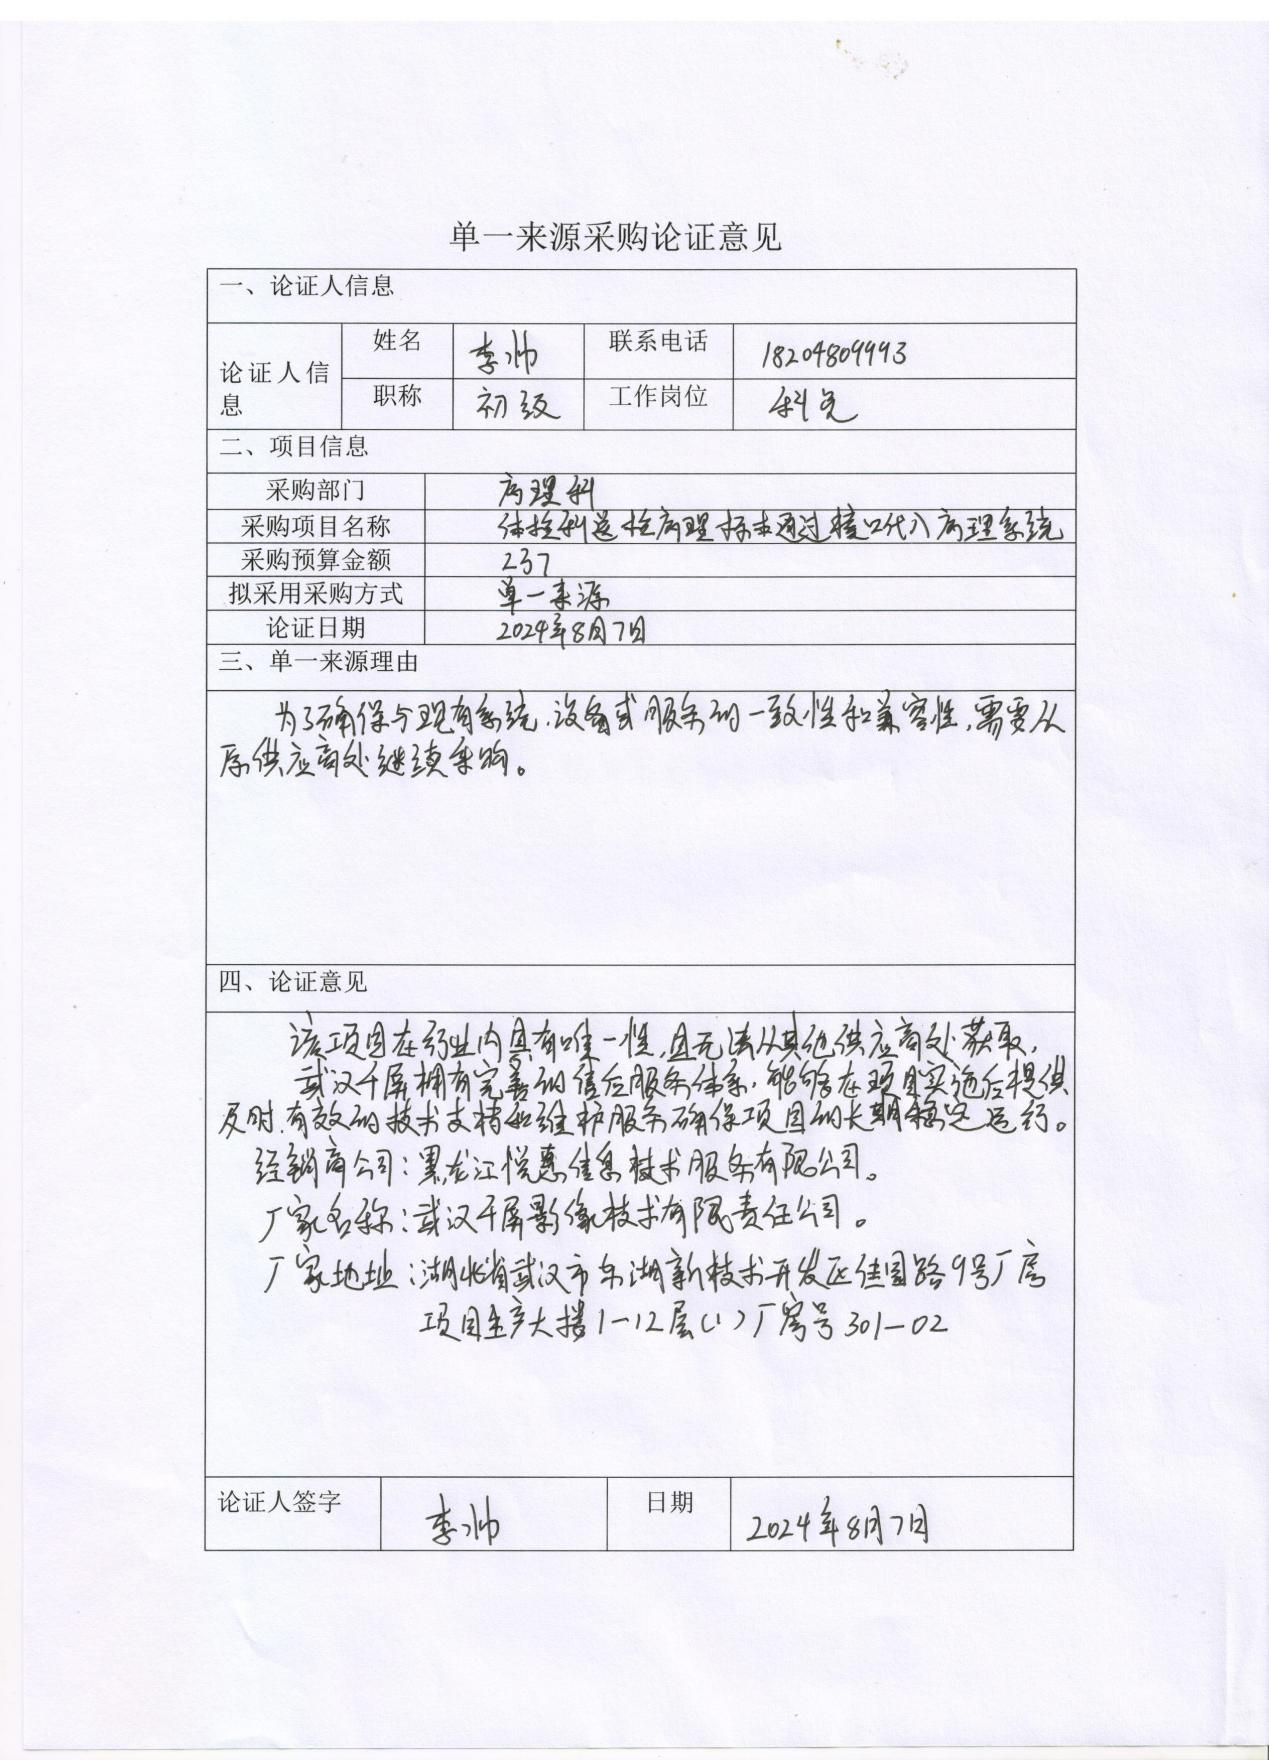 单一来源采购论证意见
一、论证人信息
论证人信息
姓名 李帅 联系电话 18204809993
职称 初级 工作岗位 科员
二、项目信息
采购部门 病理科
采购项目名称 体检科送检病理标本通过接口代入病理系统
采购预算金额 2.3万
拟采用采购方式 单一来源
论证日期 2024年8月7日
三、单一来源理由
为了确保与现有系统、设备或服务的一致性和兼容性,需要从
原供应商处继续采购。
四、论证意见
该项目在行业内具有唯一性,且无法从其他供应商处获取,
武汉千屏拥有完善的售后服务体系,能够在项目实施后提供
及时、有效的技术支持和维护服务确保项目的长期稳定运行。
经销商公司:黑龙江悦惠信息技术服务有限公司。
厂家名称:武汉千屏影像技术有限责任公司。
厂家地址:湖北省武汉市东湖新技术开发区佳园路9号厂房
项目生产大楼1-12层(1)厂房号301-02
论证人签字 李帅 日期 2024年8月7日